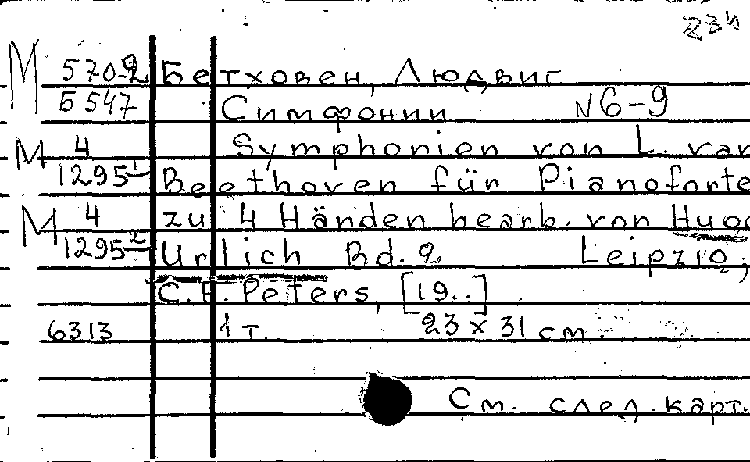 234
М 570-2 Бетховен, Людвиг
Б 547 Симфонии № 6-9
М 4 Symphonien von L. van
1295-1 Beethoven für Pianoforte
М 4 zu 4 Händen bearb. von Hugo
1295-2 Urlich Bd. 2. Leipzig,
C.F. Peters, [19..]
6313 1 т. 23 x 31 см.
См. след. карт.